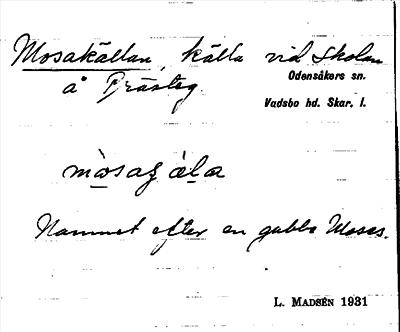 Mosakällan, källa vid Skolan
å Prästeg.
Odensåkers sn.
Vadsbo hd. Skar. l.
mòsaʒ ὰla
Namnet efter en gubbe Moses.
L. MADSÉN 1931